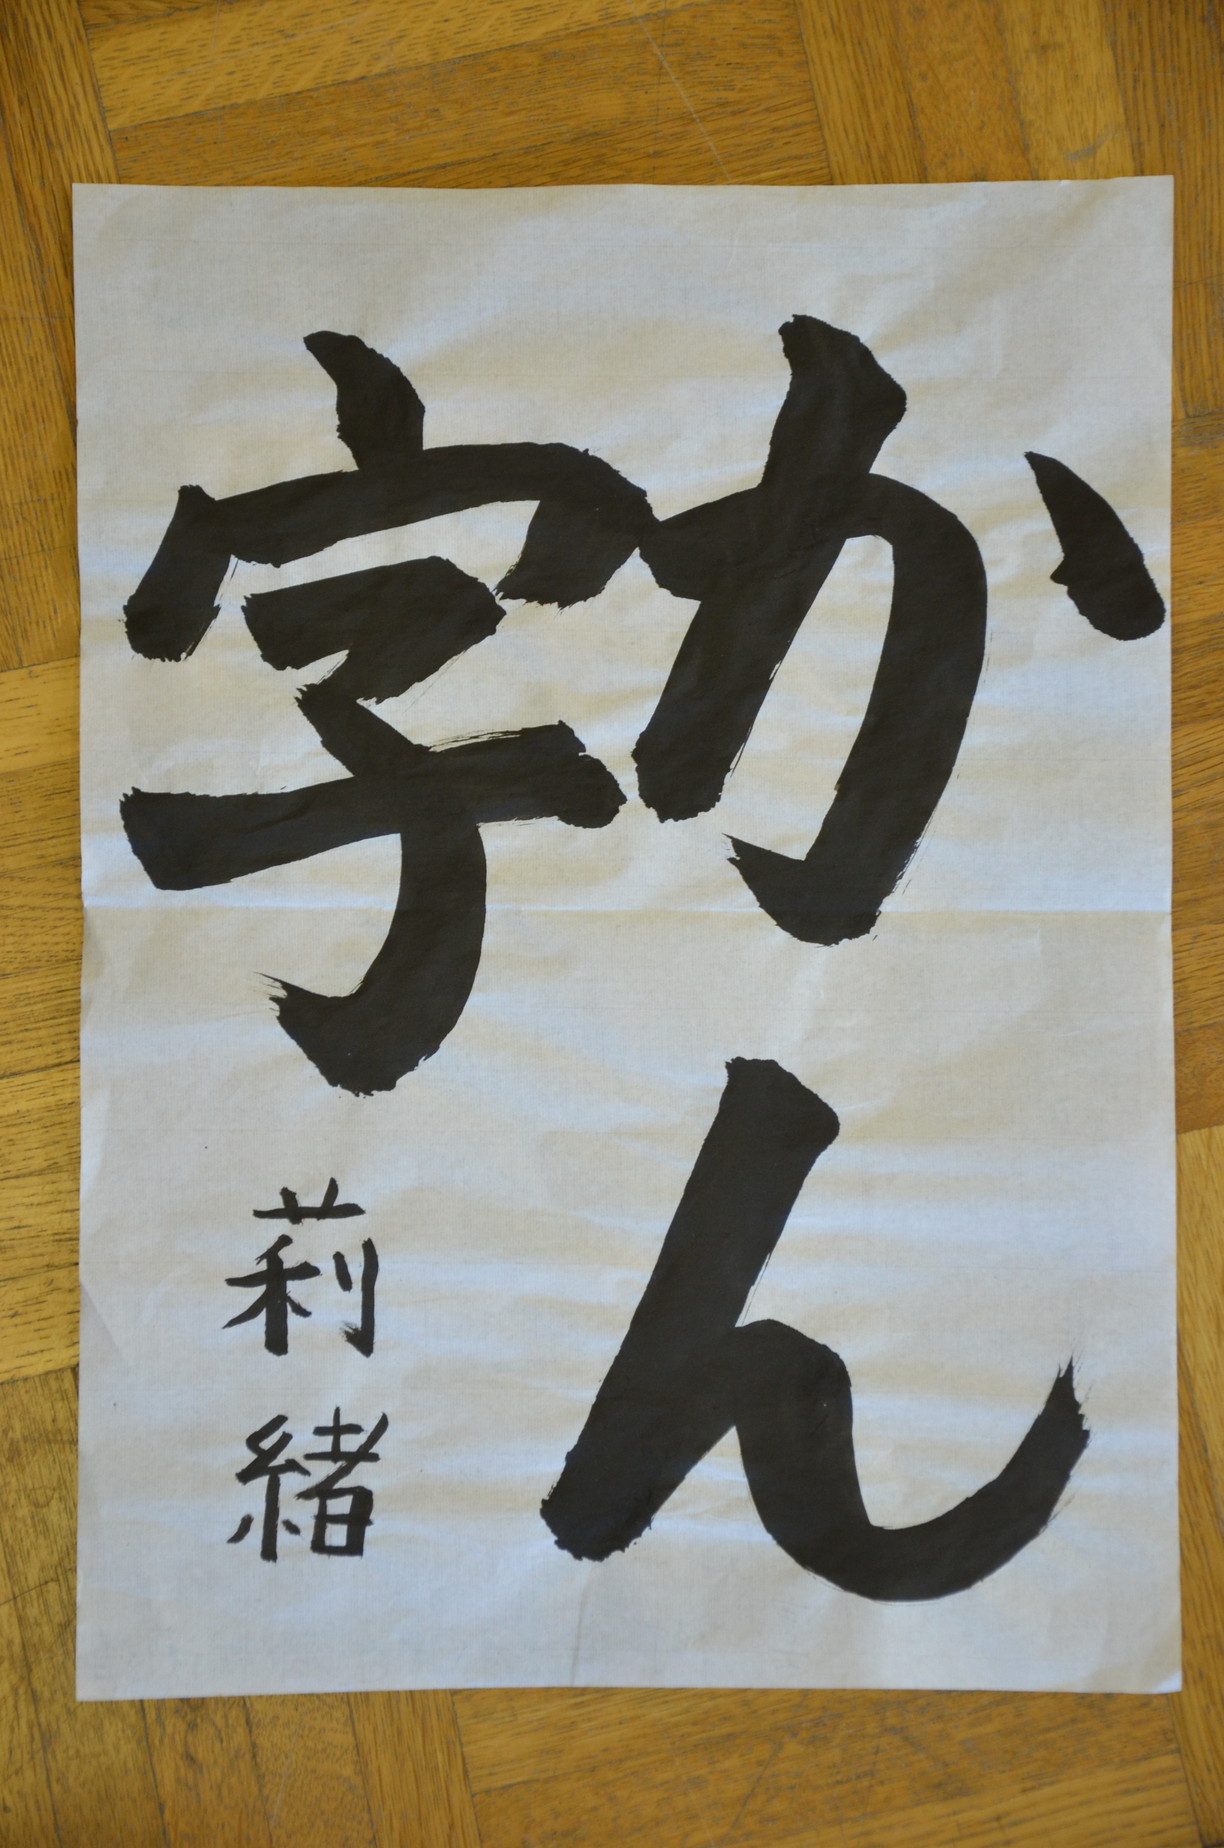 かん
字
莉緒